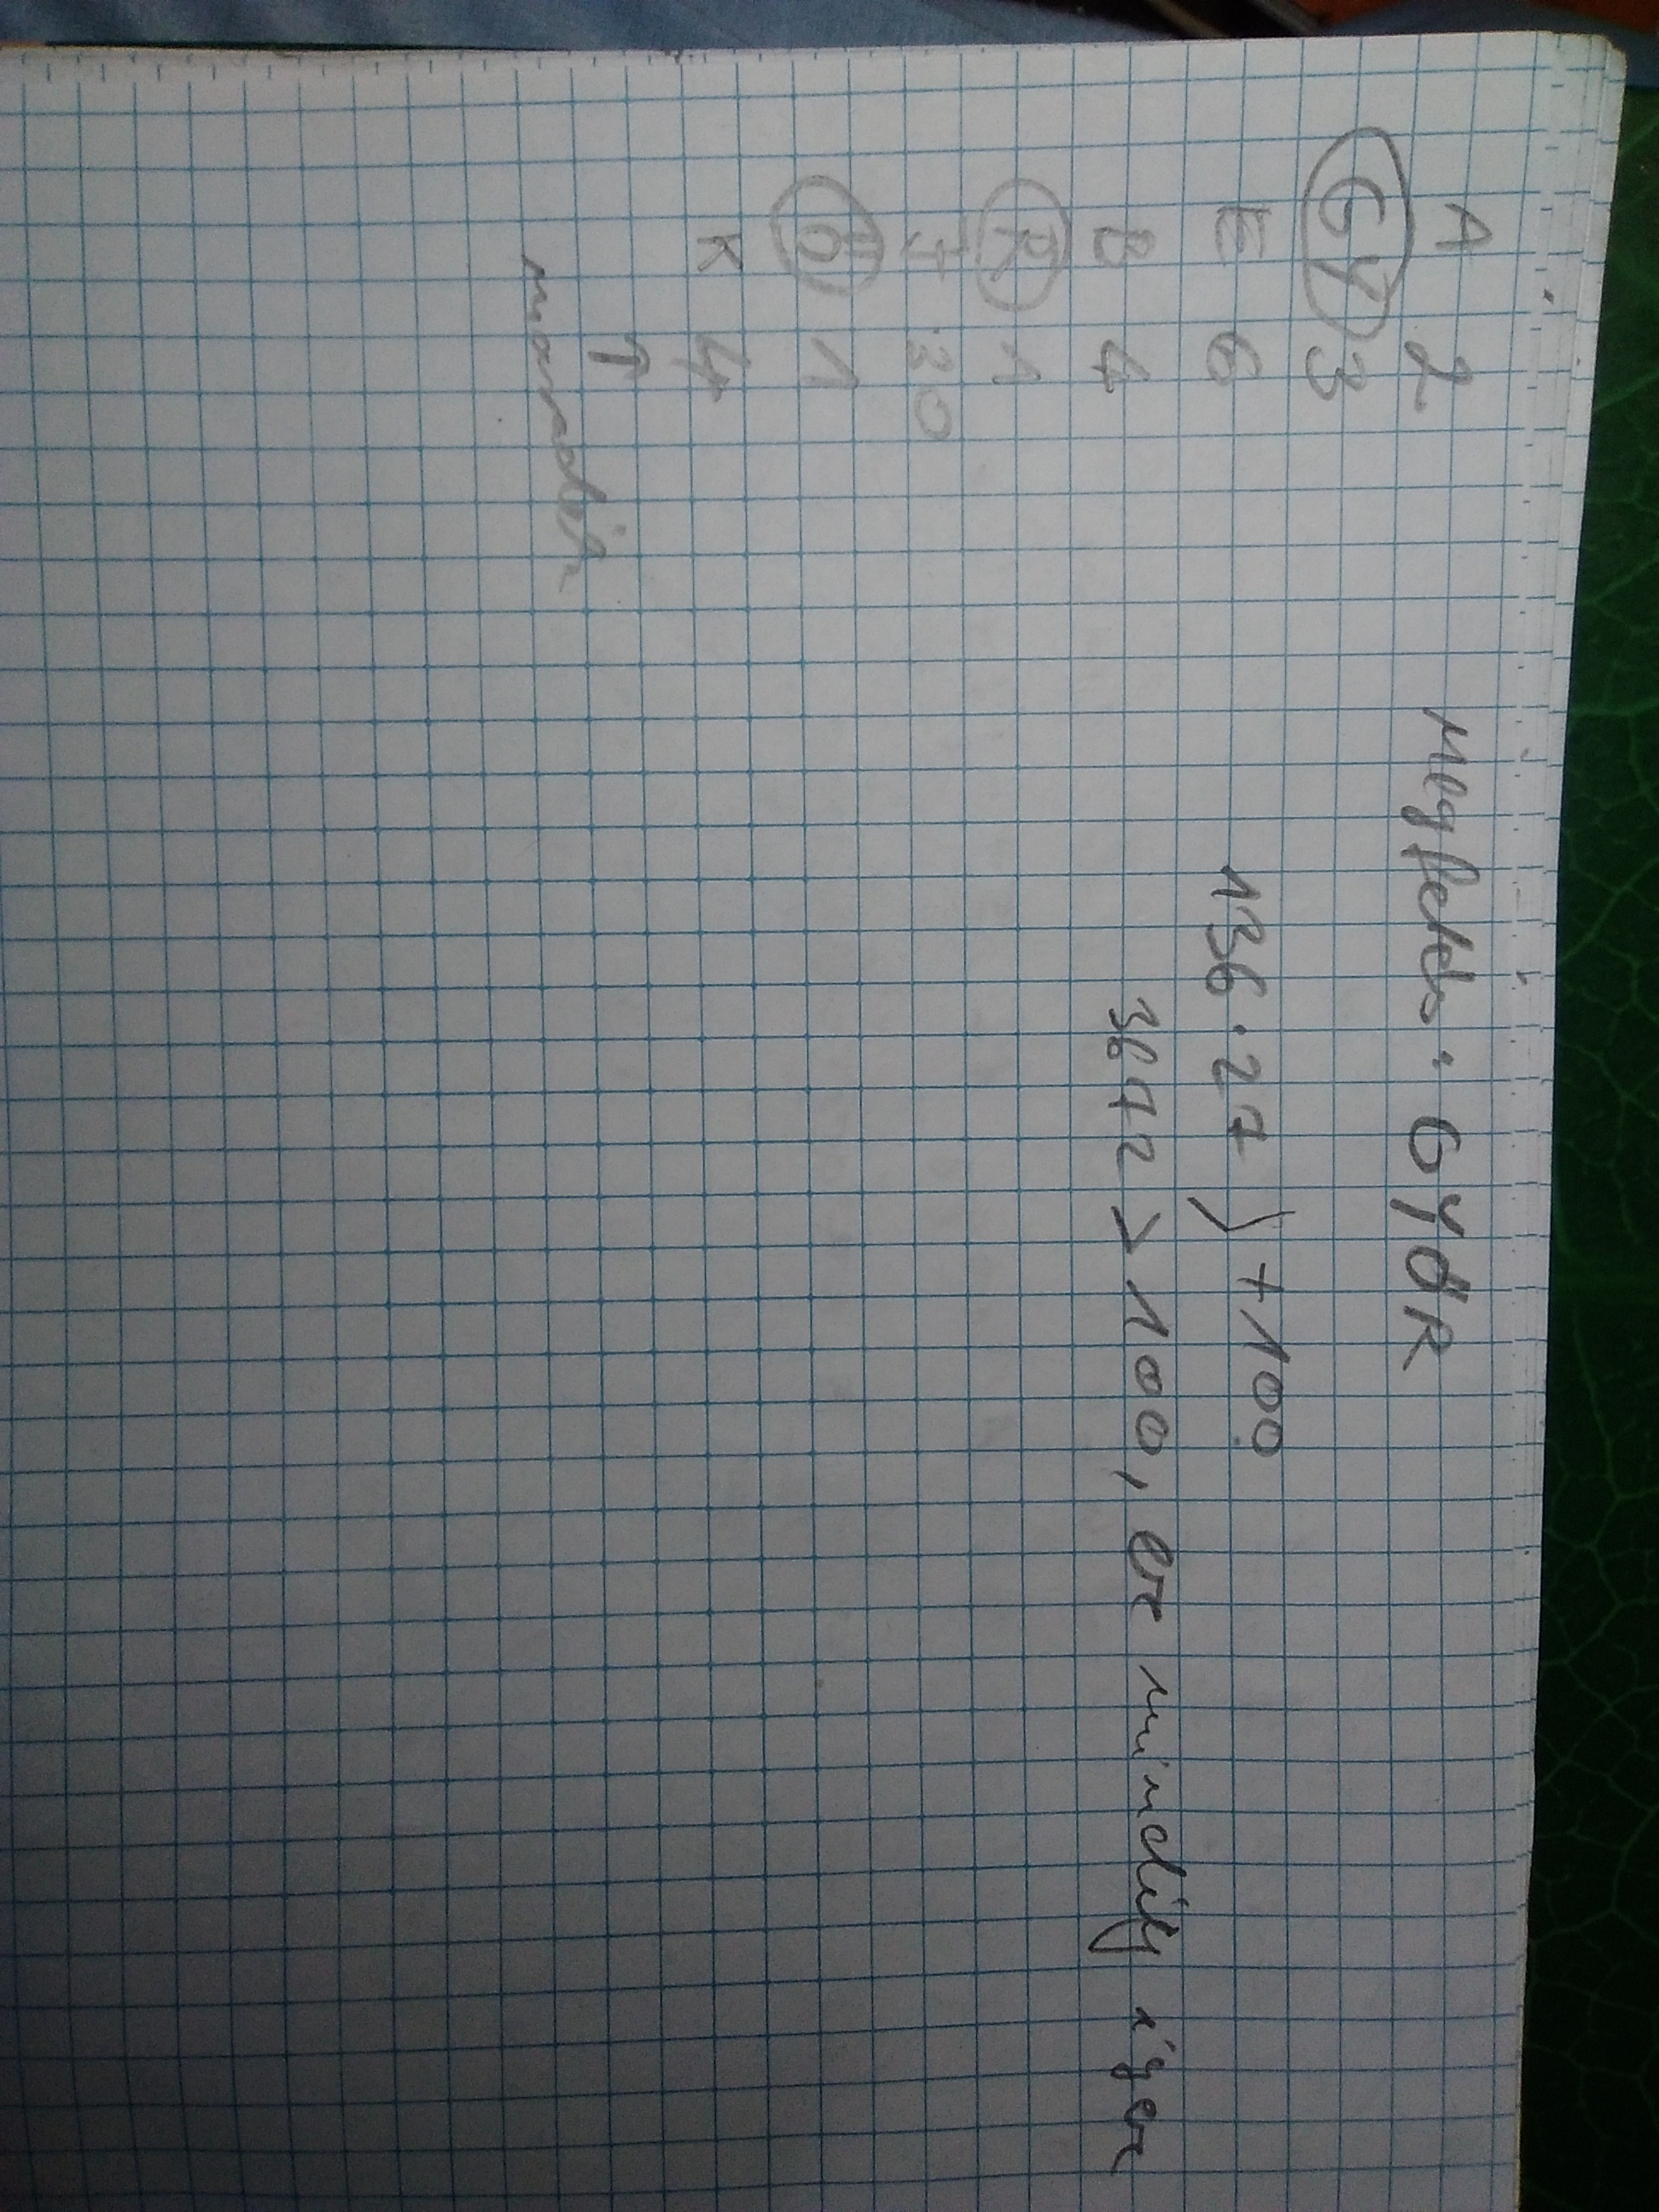 A 2
GY 3
E 6
B 4
R 1
I 30
Ő 1
K 4
↑
maradék
Megfejtés: GYŐR
136·27 > +100
3672 > 100, ez mindig igaz